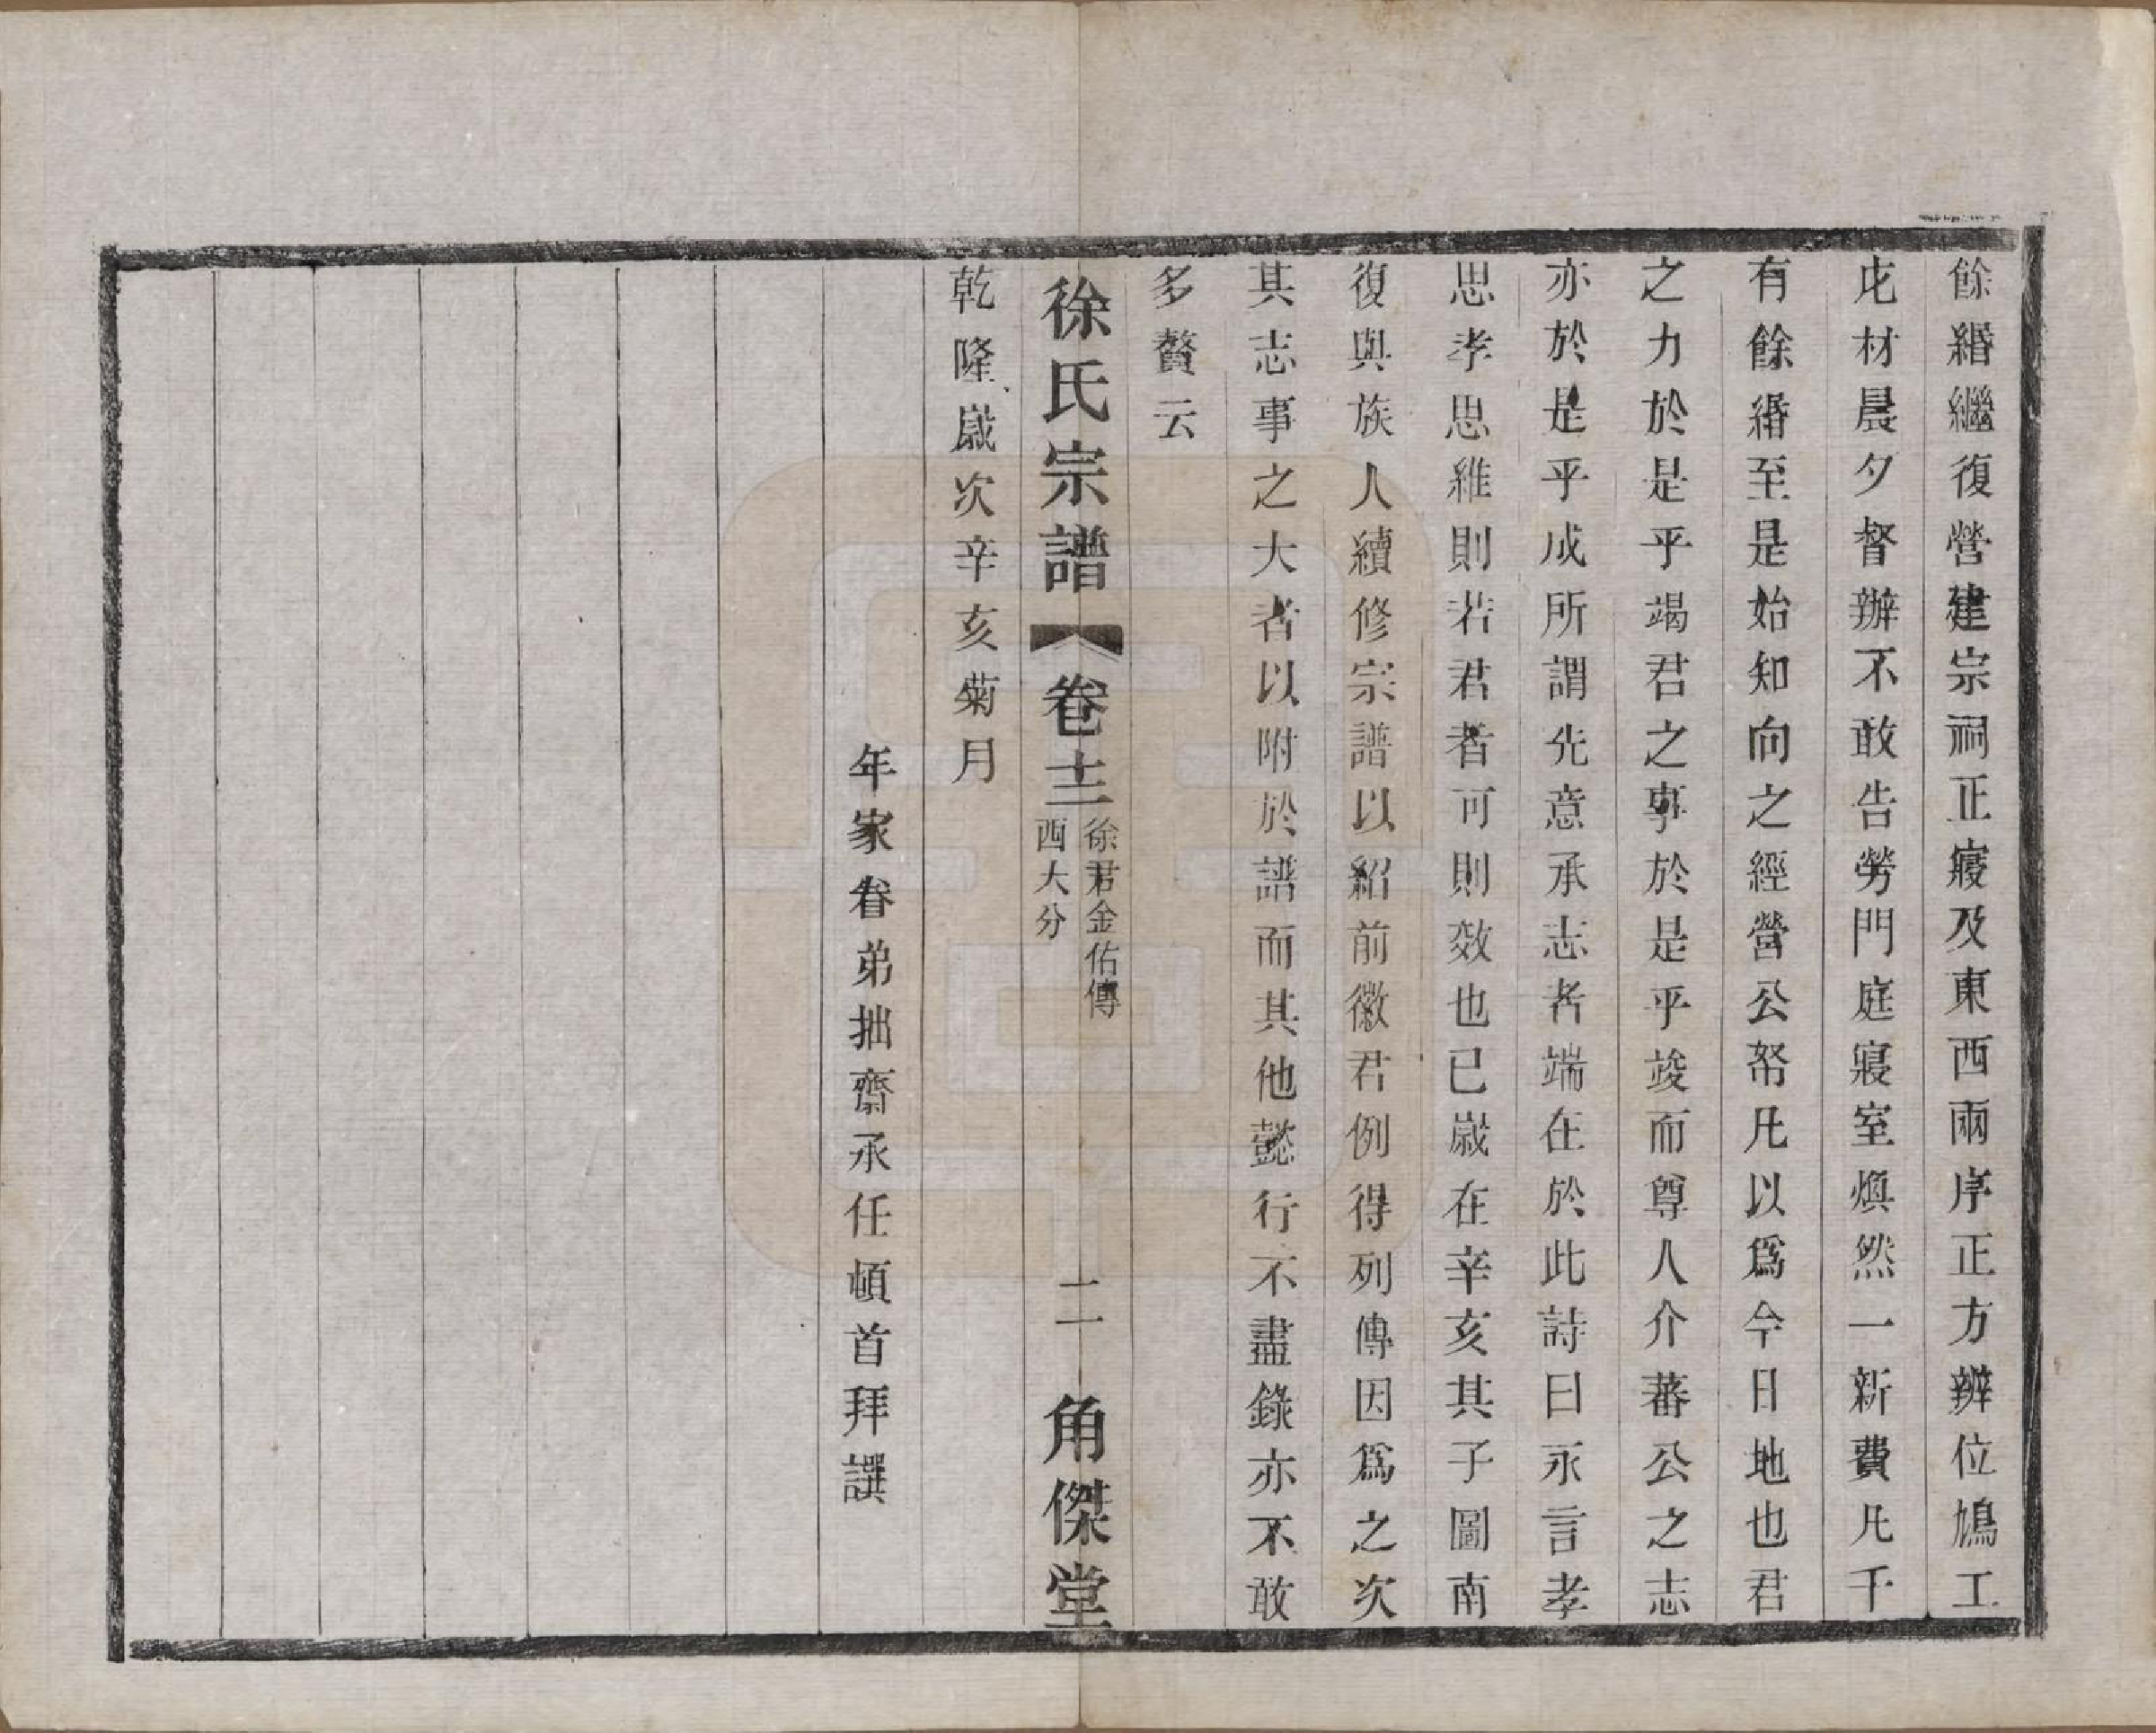 餘緡繼復營建宗祠正寢及東西兩序正方辨位鳩工
庀材晨夕督辦不敢告勞門庭寢室煥然一新費凡千
有餘緡至是始知向之經營公帑凡以爲今日地也君
之力於是乎竭君之事於是乎竣而尊人介蕃公之志
亦於是乎成所謂先意承志者端在於此詩曰永言孝
思孝思維則若君者可則效也已歲在辛亥其子圖南
復與族人續修宗譜以紹前徽君例得列傳因爲之次
其志事之大者以附於譜而其他懿行不盡錄亦不敢
多贅云
徐氏宗譜
卷十三
徐君金佑傳
西大分
二
角傑堂
乾隆歲次辛亥菊月
年家眷弟拙齋承任頓首拜譔